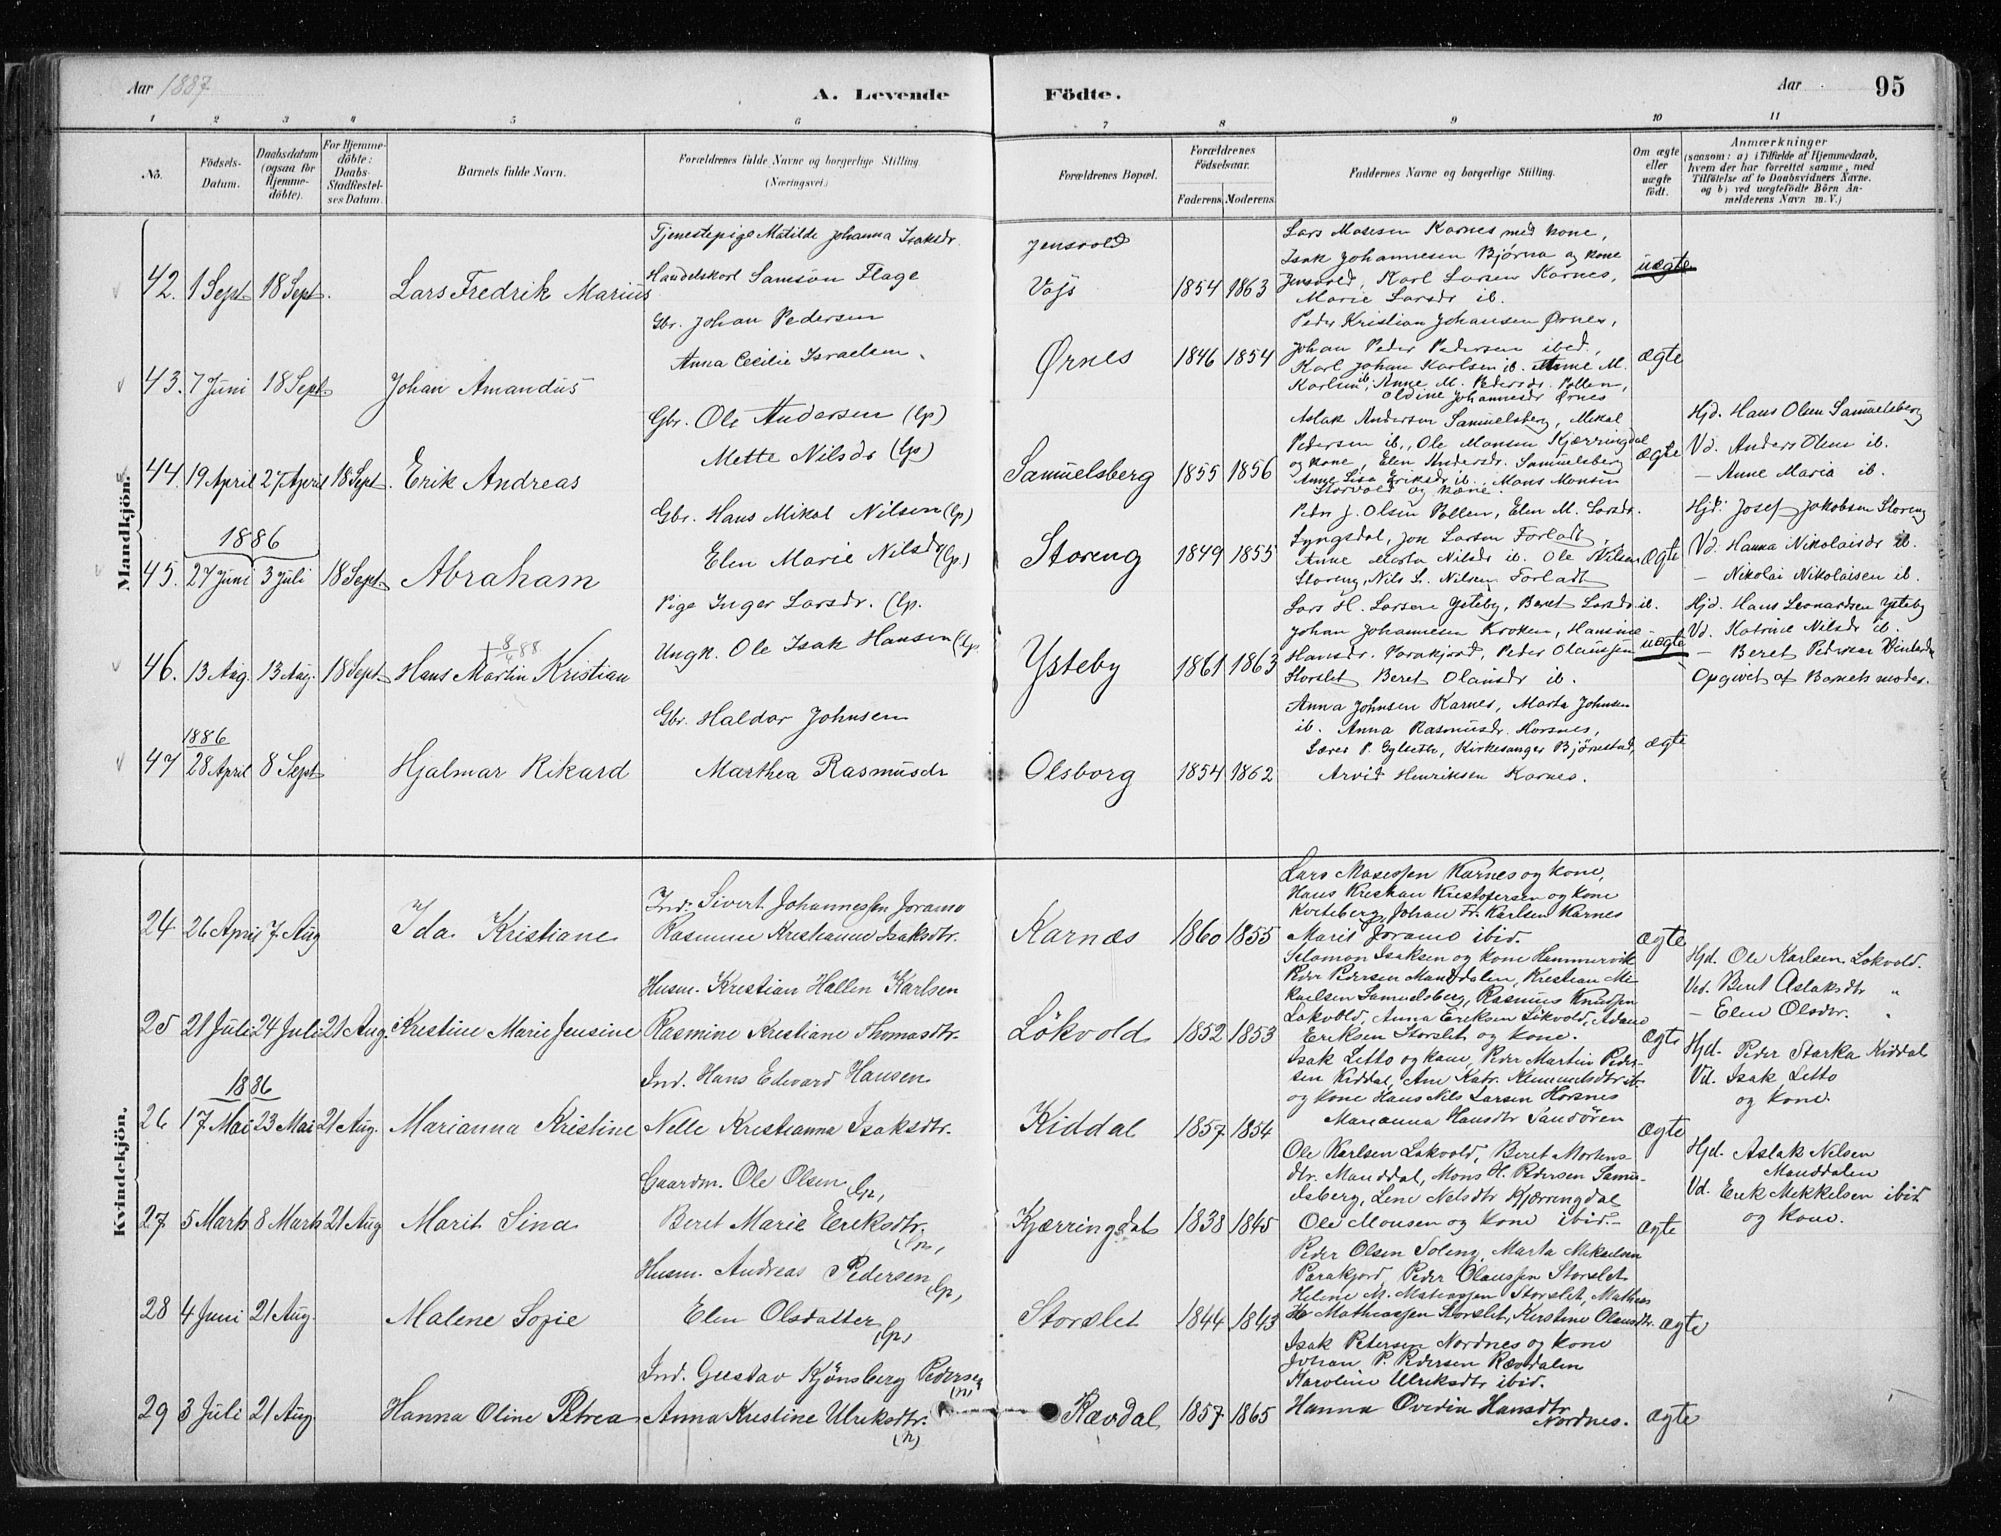 Aar 1887
A. Levende Födte.
Aar 95
1 2 3 4 5 6 7 8 9 10 11
No. Födsels-Datum. Daabsdatum (ogsaa for Hjemme-döbte). For Hjemme-döbte: Daabs-Stadfæstel-ses Datum. Barnets fulde Navn. Forældrenes fulde Navne og borgerlige Stilling. (Næringsvei.) Forældrenes Bopæl. Forældrenes Födselsaar. Faderens Moderens. Faddernes Navne og borgerlige Stilling. Om ægte eller uægte födt. Anmærkninger (saasom: a) i Tilfælde af Hjemmedaab, hvem der har forrettet samme, med Tilföielse af to Daabsvidners Navne, og b) ved uægtefödte Börn An-melderens Navn m. V.)
Mandkjön.
42. 1 Sept 18 Sept. Lars Fredrik Marius
Tjenestepige Matilde Johanna Isaksdr.
Handelskarl Samson Flage
Jensvold
Vojs 1854 1863
Lars Mosesen Karnes med kone,
Isak Johannesen Bjørna og kone
Jensvold, Karl Larsen Karnes,
Marie Larsdr ib.
uægte
43. 7 Juni 18 Sept. Johan Amandus
Gbr. Johan Pedersen
Anna Cecilie Israelsen
Ørnes 1846 1854
Peder Kristian Johansen Ørnes,
Johan Peder Pedersen ibed.,
Karl Johan Karlsen ib. Anne M.
Karlsen ib, Anne M. Pedersdr. Pollen,
Oldine Johannesdr Ørnes
ægte
44. 19 April 27 April 18 Sept. Erik Andreas
Gbr. Ole Andersen (lp)
Mette Nilsdr (lp)
Samuelsberg 1855 1856
Aslak Andersen Samuelsberg, Mikal
Pedersen ib., Ole Monsen Kjærringdal
og kone, Elen Andersdr. Samuelsberg
Anne Lisa Eriksdr ib., Mons Monsen
Storvold og kone.
ægte
Hjd. Hans Olsen Samuelsberg
Vd. Anders Olsen ib.
— Anne Maria ib.
1886
45. 27 Juni 3 Juli 18 Sept. Abraham
Gbr. Hans Mikal Nilsen (lp)
Elen Marie Nilsdr (lp.)
Storeng 1849 1855
Peder J. Olsen Pollen, Elen M. Larsdr.
Lyngsdal, Jon Larsen Forladt,
Anne Marta Nilsdr ib. Ole Nilsen
Storeng, Nils L. Nilsen Forladt
ægte
Hjd. Josef Jakobsen Storeng
Vd. Hanna Nikolaisdr ib.
— Nikolai Nikolaisen ib.
46. 13 Aug. 13 Aug. 18 Sept. Hans Martin Kristian
Pige Inger Larsdr. (lp.
Ungk. Ole Isak Hansen (lp.
Ysteby 1861 1863
Lars H. Larsen Ysteby, Beret Larsdr ib.
Johan Johannesen Kroken, Hansine
Hansdr. Parakjord, Peder Olaussen
Storslet Beret Olausdr ib.
uægte
Hjd. Hans Leonardsen Ysteby
Vd. Katrine Nilsdr ib.
— Beret Pedersen
Opgivet af Barnets moder.
1886
47 28 April 8 Sept Hjalmar Rikard
Gbr. Haldor Johnsen
Marthea Rasmusdr
Olsborg 1854 1862
Anna Johnsen Karnes, Marta Johnsen
ib. Anna Rasmusdr. Horsnes,
Lærer P. Gylseth, Kirkesanger Bjørnstad,
Arvid Henriksen Karnes.
ægte
Kvindekjön.
24 26 April 7 Aug Ida Kristiane
Ind. Sivert Johannessen Joramo
Rasmine Kristianne Isaksdtr.
Karnæs 1860 1855
Lars Masessen Karnes og kone,
Hans Kristian Kristofersen og kone
Kveteberg, Johan Fr. Karlsen Karnes
Marit Joramo ibid.
ægte
25 21 Juli 24 Juli 21 Aug. Kristine Marie Jensine
Husm. Kristian Hallen Karlsen
Rasmine Kristiane Thomasdtr.
Lökvold 1852 1853
Salamon Isaksen og kone Hammervik
Peder Pedersen Manddalen, Kristian Mi-
kaelsen Samuelsberg, Rasmus Knutsen
Lökvold, Anna Eriksen Lökvold, Adam
Eriksen Storslet og kone.
ægte
Hjd. Ole Karlsen Lökvold.
Vd. Beret Aslaksdtr "
— Elen Olsdtr. "
1886
26 17 Mai 23 Mai 21 Aug. Marianna Kristine
Ind. Hans Edvard Hansen
Nelle Kristianna Isaksdtr.
Kiddal 1857 1854
Isak Letto og kone, Peder Martin Peder-
sen Kiddal, Ane Katr. Klemmetsdtr ib
og kone Hans Nils Larsen Horsnes
Marianna Hansdtr Sandören
ægte
Hjd. Peder Starka Kiddal
Vd. Isak Letto
og kone.
27 5 Marts 8 Marts 21 Aug Marit Sina
Gaardm. Ole Olsen (lp,
Beret Marie Eriksdtr. (lp,
Kjærringdal 1838 1845
Ole Karlsen Lökvold, Beret Mortens-
dtr. Manddal, Mons H. Pedersen Samu-
elsberg, Lene Nilsdtr Kjærringdal
Ole Monsen og kone ibid.
ægte
Hjd. Aslak Nilsen
Manddalen
Vd. Erik Mikkelsen ibid
og kone.
28 4 Juni 21 Aug. Malene Sofie
Husm. Andreas Pedersen (lp,
Elen Olsdatter (lp,
Storslet 1844 1843
Peder Olsen Soleng, Marta Mikaelsen
Parakjord, Peder Olaussen Storslet
Helene M. Mateassen Storslet, Mathias
H Mathiassen Storslet, Kerstine Olausdtr.
ægte
29 3 Juli 21 Aug. Hanna Oline Petrea
Ind. Gustav Kjönsberg Pedersen (n)
Anna Kristine Ulriksdtr. (n)
Rævdal 1857 1865
Isak Petersen Nordnes og kone
Johan P. Pedersen Rævdalen
Karoline Ulriksdtr ibid.
Hanna Ovidia Hansdtr
Nordnes.
ægte